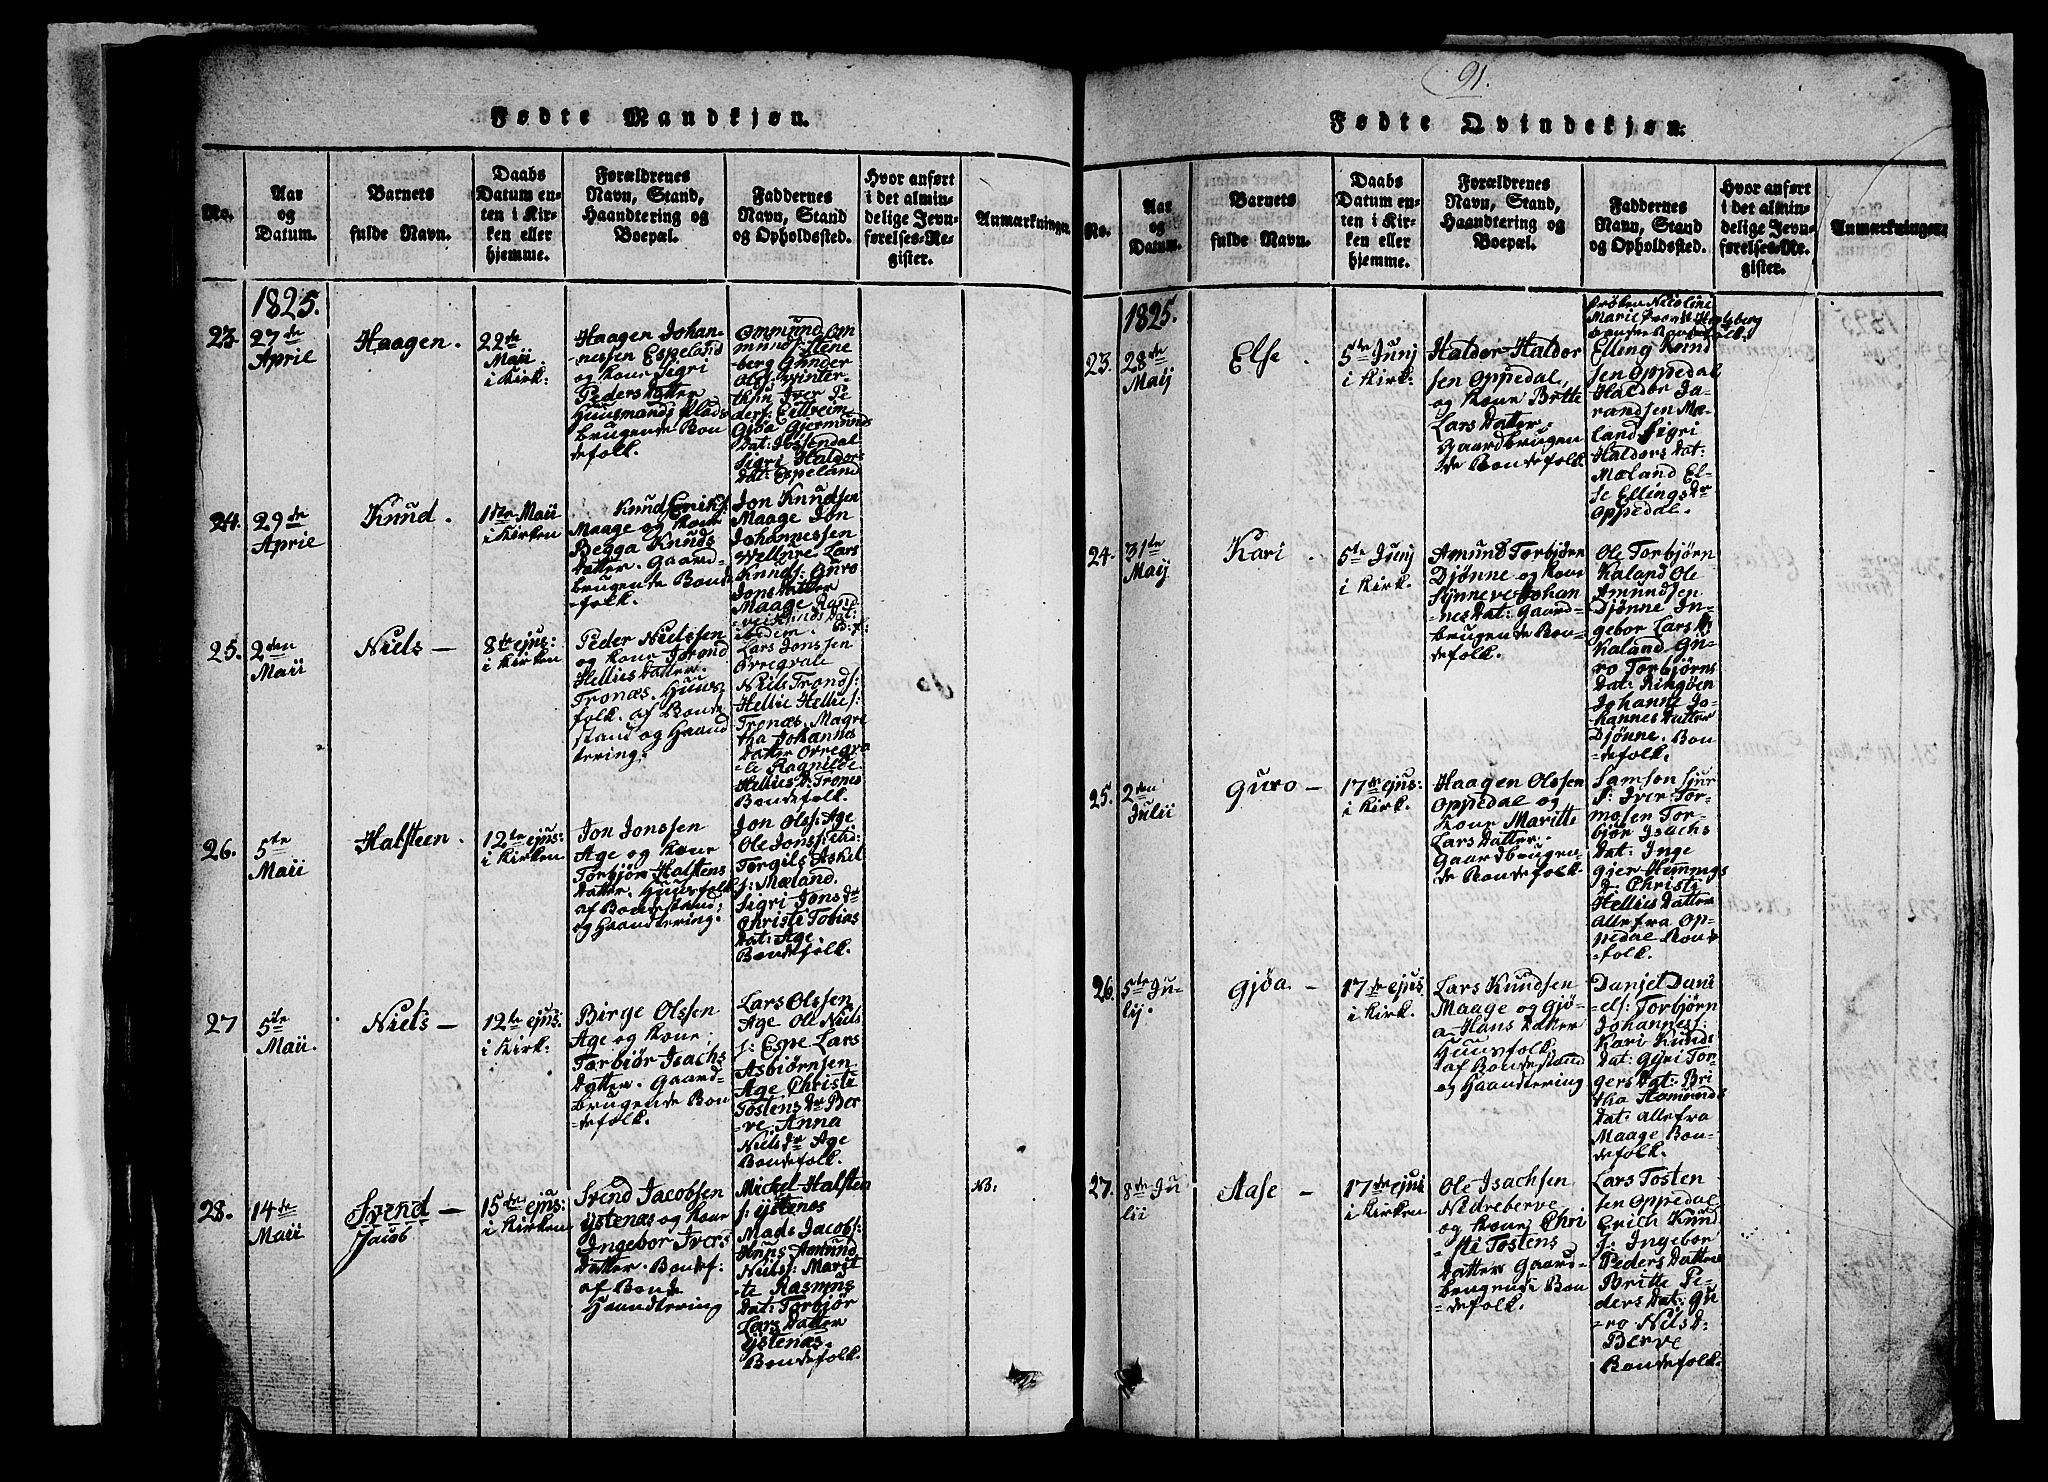 91.
Fødte Mandkjøn.
No.
Aar
og
Datum.
Barnets
fulde Navn.
Daabs
Datum en-
ten i Kir-
ken eller
hjemme.
Forældrenes
Navn, Stand,
Haandtering og
Boepæl.
Faddernes
Navn, Stand
og Opholdssted.
Hvor anført
i det almin-
delige Jevn-
førelses-Re-
gister.
Anmærkninger.
1825.
23.
27de
April
Haagen.
22de
Maii.
i Kirk:
Haagen Johan-
nessen Espeland
og Kone Sigri
Peders Datter
Huusmands Plads
brugende Bon
defolk.
Ommund Om
mnds:
berg Gunder
Olss: Winter-
thun Iver Pe
ders: Eittreim
Gjøa Gjermunds
Dat: Jøssendal
Sigri Haldors
Dat: Espeland
24.
29de
April
Knud.
1ste Maii
i Kirken
Knud Eriks:
Maage og Kone
Begga Knuds
Datter. Gaard-
brugende Bond
-folk.
Jon Knudsen
Maage Jon
Johannessen
Lars
Knuds: Guro
Jons Datter
Maage Rand
vei Knuds Dat:
ibidem. B: f:
25.
2den
Maii
Niels —
8de ejus:
i Kirken
Peder Nielssen
og Kone Torond
Hellies Datter.
Tronæs. Huus
folk. af Bonde
stand og Haand
tering.
Lars Jonssen
Orregvale
Niels Tronds:
Hellie Hellies:
Tronæs. Magre
tha Johannes
Datter Orregva
-le Ragnilde
Hellies D: Trones
Bondefolk.
26.
5te
Maii
Halsteen.
12te ejus:
i Kirken
Jon Jonssen
Age og Kone
Torbjør Halstens
Datter. Huusfolk
af Bondestand;
og Haandtering.
Jon Olss: Age
Ole Jonss: ibid:
Torgils Askel
s: Mæland.
Sigri Jons Dr
Christi Tobias
Dat: Age
Bondefolk.
27
5te
Maii.
Niels —
12te ejus:
i Kirk:
Birge Olssen
Age og Kone;
Torbiør Isachs
Datter. Gaard-
brugende Bon
-defolk.
Lars Olssen
Age Ole Niels
s: Espe Lars
Asbjørnsen
Age Christi
Tostens Dr Ber
-ve. Anna
Niels Dr Age
Bondefolk.
28.
14de
Maii
Svend —
Jacob
15de ejus:
i Kirken
Svend Jacobsen
Ystenæs og Kone
Ingebor Ivers
Datter. Bondef:
af Bonde
Haandtering
Michel Halsten
s: Ystenæs
Mads Jacobs:
Huus Amund
Niels: Marit
-te Rasmus
Dat: Torbjør
Lars Datter
Ystenæs.
Bondefolk.
NB:
Fødte Qvindekjøn.
No.
Aar
og
Datum.
Barnets
fulde Navn.
Daabs
Datum en-
ten i Kir-
ken eller
hjemme.
Forældrenes
Navn, Stand,
Haandtering og
Boepæl.
Faddernes
Navn, Stand
og Opholdssted.
Hvor anført
i det almin-
delige Jevn-
førelses-Re-
gister.
Anmærkninger.
1825.
23.
28de
Maij
Else.
5te Junj
i Kirk:
Haldor Haldor
sen Oppedal,
og Kone Britte
Lars Datter.
Gaardbrugen
de Bondefolk
Frøken Nicoline
Marie
Elling Knud
sen Oppedal
Haldor Ja-
randsen Mæ-
land Sigri
Haldors Dat:
Mæland El-
se Ellings Dr
Oppedal.
24.
31te
Maij
Kari.
5te Junj
i Kirk.
Amund Torbjørn
Djønne og Kone
Synneve Johan
nes Dat: Gaard-
brugende Bon-
defolk.
Ole Torbjørn
Kaland Ole
Amundsen
Djønne In-
gebor Lars D:
Kaland Gu-
ro Torbjørns
Dat: Ringøen
Johanne Jo-
hannes Datter
Djønne. Bon-
defolk.
25.
2den
Julii
Guro —
17de ejus:
i Kirk.
Haagen Olssen
Oppedal og
Kone Maritte
Lars Datter.
Gaardbrugen-
de Bondefolk.
Samson Sjur
s: Iver Tor-
mosen Tor-
bjør Isachs
Dat: Inge
gjer Hunnings
D. Christi
Hellies Datter
alle fra Op-
pedal Bonde
-folk.
26.
5te Ju-
lij.
Gjøa —
17de ejus
i Kirk.
Lars Knudsen
Maage og Gjø-
a Hans Datter
Huusfolk
af Bondestand
og Haandtering
Danjel Dani
els: Torbjørn
Johannes:
Kari Knuds
Dat: Gyri Tor-
gers Dat: Bri
tha Aamunds
Dat: alle fra
Maage Bon-
defolk.
27.
8de Ju
lii
Aase —
17de ejus
i Kirken
Ole Isachsen
Nidreberve
og Kone Chri
-sti Tostens
Datter Gaard-
brugende Bon
-defolk.
Lars Tosten
sen Oppedal
Erich Knud
s. Ingebor
Peders Datter
Britte Pe-
ders Dat: Gu
-ro Nils D:
Berve
Bondefolk.